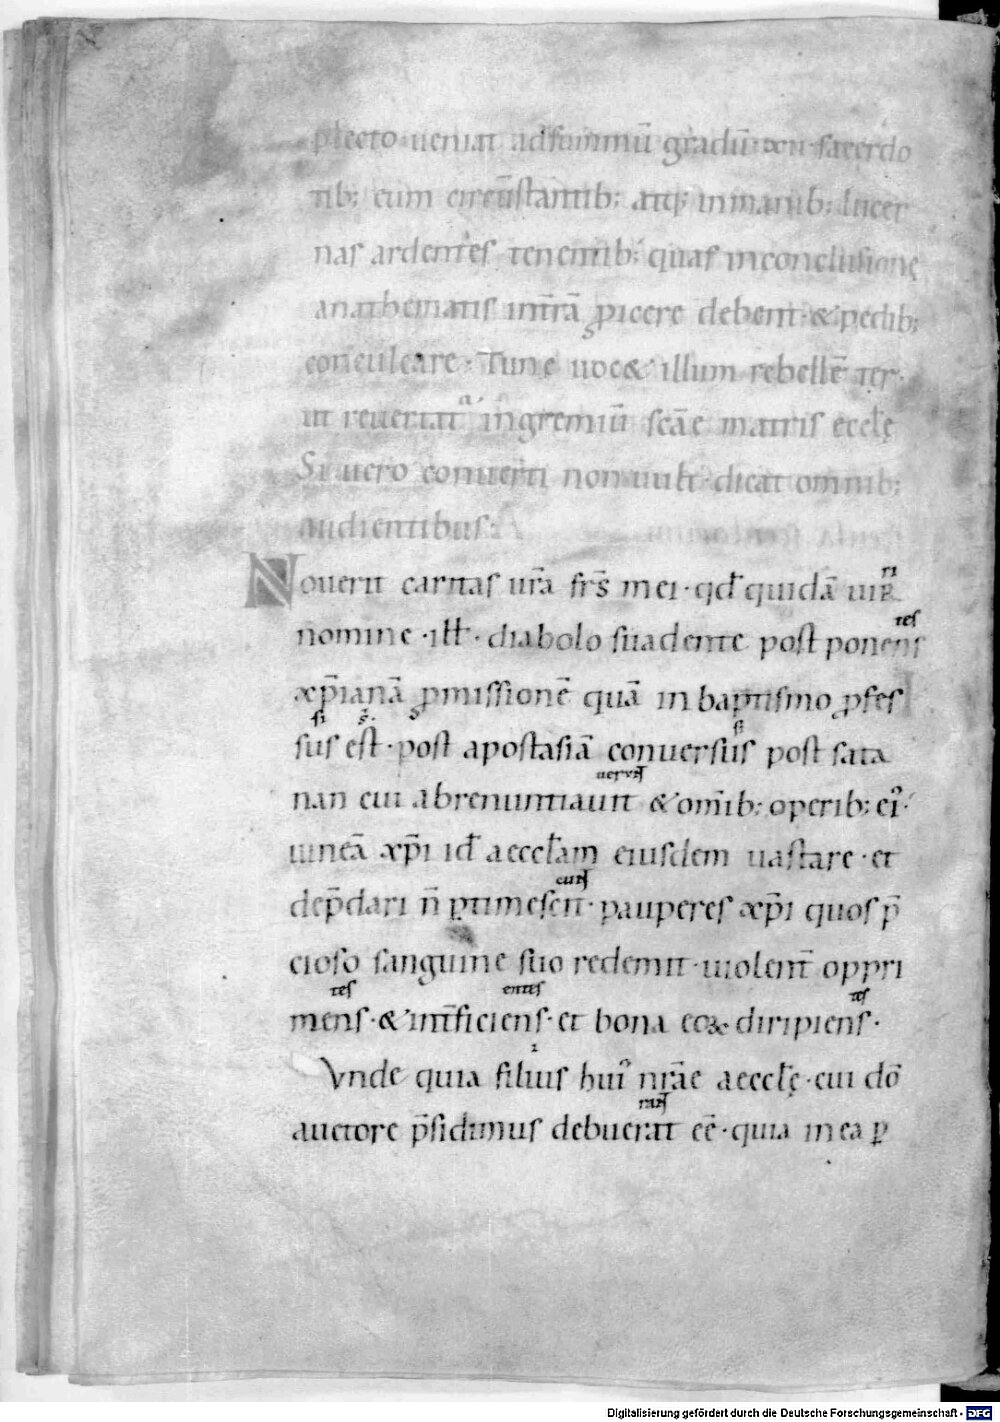 plecto ueniat ad summū gradū · xii · sacerdo
tib; eum circūstantib; atq; in manib; lucer
nas ardentes tenentib; quas in conclusione
anathematis in tr̄rā ꝓicere debent · & pedib;
conculcare · Tunc uoc& illum rebellē ter ·
ut reuertat᷑ in gremiū scāe matris eccłę
Si uero conuerti non uult · dicat omnib;
audientibus:
Nouerit caritas ur̄a fr̄s mei · qđ quidā uir ri
nomine · iłł · diabolo suadente post ponens tes
xp̄ianā ꝓmissionē quā in baptismo ꝓfes
sus est · post apostasiā conuersus post sata si s̄ · si
nan cui abrenuntiauit & om̄ib; operib; ei᷒ · uer̄
uineā xp̄i iđ aecclam eiusdem uastare · et
dep̄dari n̄ ꝑtimescit · pauperes xp̄i quos p̄
cioso sanguine suo redemit · uiolent̄ oppri
mens · & int̄ficiens · et bona eoꝝ diripiens · tes entes tes
Vnde quia filius hui᷒ nr̄ae aecclę · cui dō i
auctore p̄sidimus debuerat eē · quia in ea ꝑ
Digitalisierung gefördert durch die Deutsche Forschungsgemeinschaft - DFG